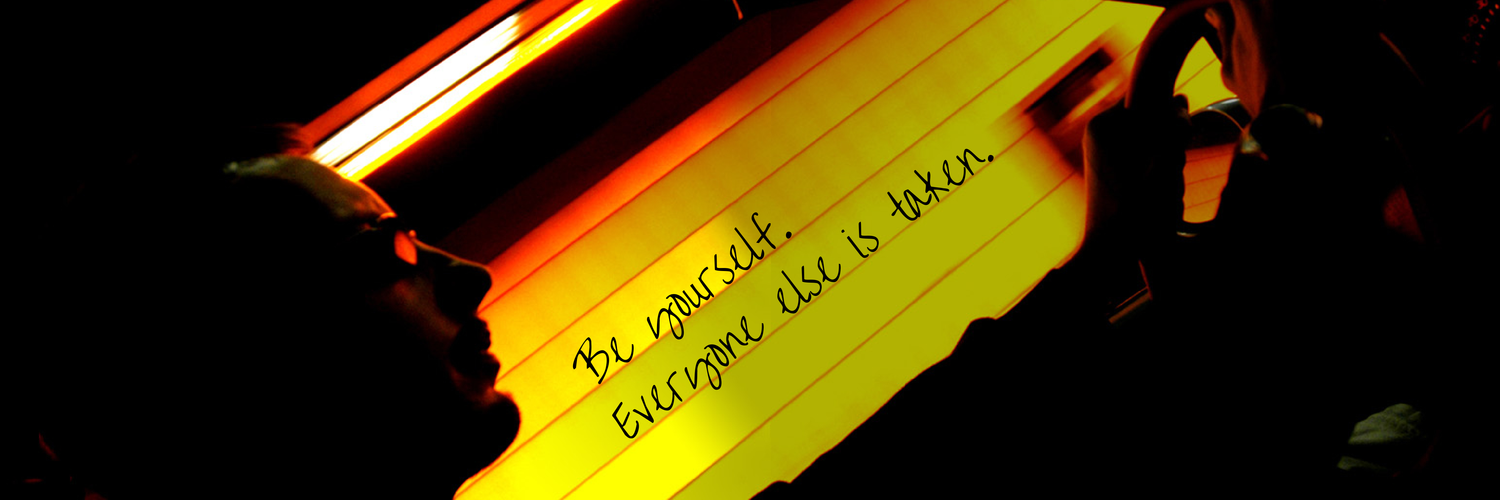 Be yourself.
Everyone else is taken.